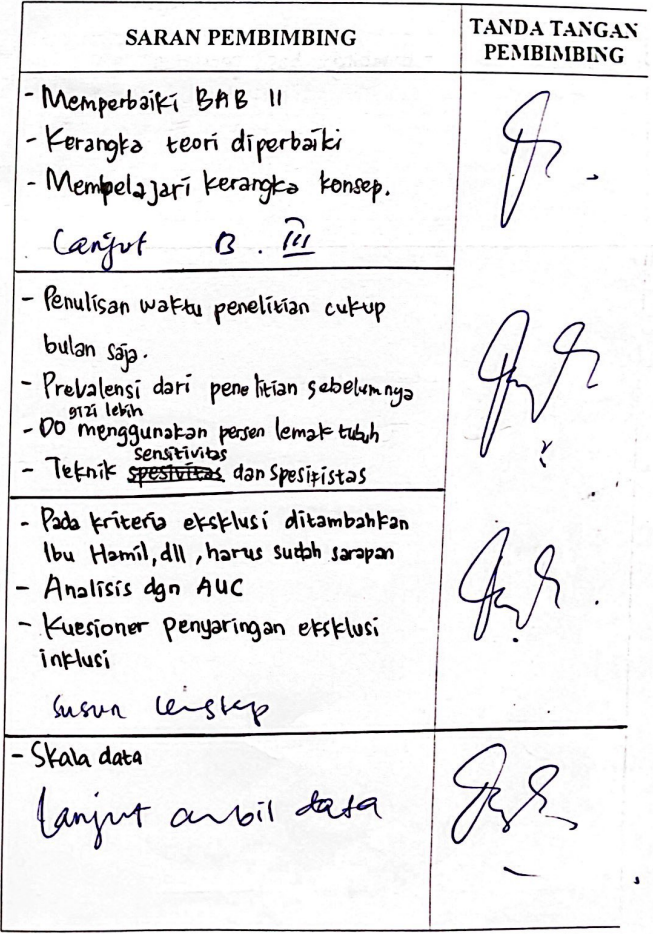 SARAN PEMBIMBING
TANDA TANGAN
PEMBIMBING
- Memperbaiki BAB II
- Kerangka teori diperbaiki
- Mempelajari kerangka konsep.
Lanjut B. III
- Penulisan waktu penelitian cukup
bulan saja.
- Prevalensi dari penelitian sebelumnya
gizi lebih
- DO menggunakan persen lemak tubuh
sensitivitas
- Teknik spesivitas dan spesifistas
- Pada kriteria eksklusi ditambahkan
Ibu Hamil, dll, harus sudah sarapan
- Analisis dgn AUC
- Kuesioner penyaringan eksklusi
inklusi
susun lengkap
- Skala data
Lanjut ambil data